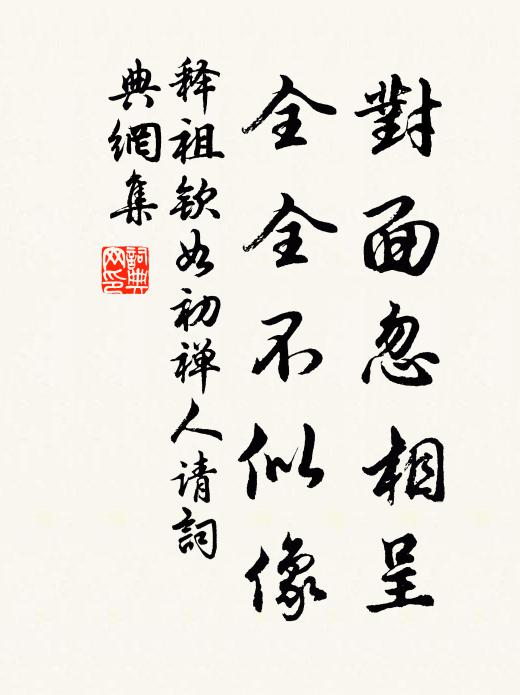 對面忽相呈
全全不似像
释祖钦如初禅人请詞
典網集
詞典網印